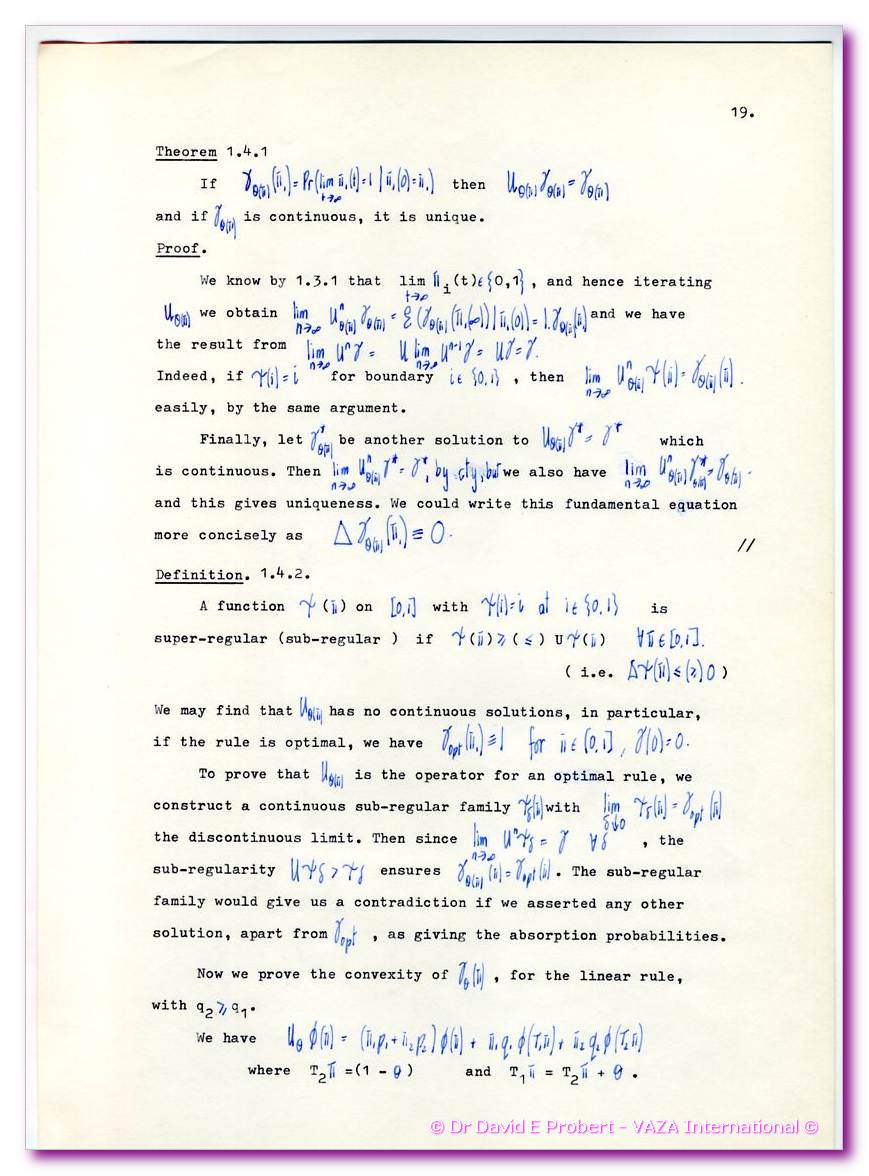 19.
Theorem 1.4.1
If γ_θ(π̄)(π̄₁) = Pr(lim_{t→∞} π̄₁(t)=1 | π̄₁(0)=π̄₁) then U_θ(π̄) γ_θ(π̄) = γ_θ(π̄)
and if γ_θ(π̄) is continuous, it is unique.
Proof.
We know by 1.3.1 that lim_{t→∞} π̄_i(t)∈{0,1}, and hence iterating
U_θ(π̄) we obtain lim_{n→∞} Uⁿ_θ(π̄) γ_θ(π̄) = ℰ(γ_θ(π̄)(π̄₁(∞))|π̄₁(0)) = 1.γ_θ(π̄)(π̄) and we have
the result from lim_{n→∞} Uⁿγ = U lim_{n→∞} Uⁿ⁻¹γ = Uγ = γ.
Indeed, if ψ(i)=i for boundary i∈{0,1} , then lim_{n→∞} Uⁿ_θ(π̄) ψ(π̄) = γ_θ(π̄)(π̄).
easily, by the same argument.
Finally, let γ*_θ(π̄) be another solution to U_θ(π̄) γ* = γ* which
is continuous. Then lim_{n→∞} Uⁿ_θ(π̄) γ* = γ*, by cty, but we also have lim_{n→∞} Uⁿ_θ(π̄) γ*_θ(π̄) = γ_θ(π̄).
and this gives uniqueness. We could write this fundamental equation
more concisely as Δγ_θ(π̄)(π̄₁) ≡ 0. //
Definition. 1.4.2.
A function ψ(π̄) on [0,1] with ψ(i)=i at i∈{0,1} is
super-regular (sub-regular ) if ψ(π̄)⩾(⩽) Uψ(π̄) ∀π̄∈[0,1].
( i.e. Δψ(π̄)⩽(⩾)0 )
We may find that U_θ(π̄) has no continuous solutions, in particular,
if the rule is optimal, we have γ_opt(π̄₁)≡1 for π̄∈(0,1], γ(0)=0.
To prove that U_θ(π̄) is the operator for an optimal rule, we
construct a continuous sub-regular family ψ_δ(π̄) with lim_{δ↓0} ψ_δ(π̄) = γ_opt(π̄)
the discontinuous limit. Then since lim_{n→∞} Uⁿψ_δ = γ ∀δ , the
sub-regularity Uψ_δ > ψ_δ ensures γ_θ(π̄)(π̄) = γ_opt(π̄). The sub-regular
family would give us a contradiction if we asserted any other
solution, apart from γ_opt , as giving the absorption probabilities.
Now we prove the convexity of γ_θ(π̄) , for the linear rule,
with q₂⩾q₁.
We have U_θ φ(π̄) = (π̄₁p₁+π̄₂p₂)φ(π̄) + π̄₁q₁φ(T₁π̄) + π̄₂q₂φ(T₂π̄)
where T₂π̄ =(1 - θ) and T₁π̄ = T₂π̄ + θ .
© Dr David E Probert - VAZA International ©